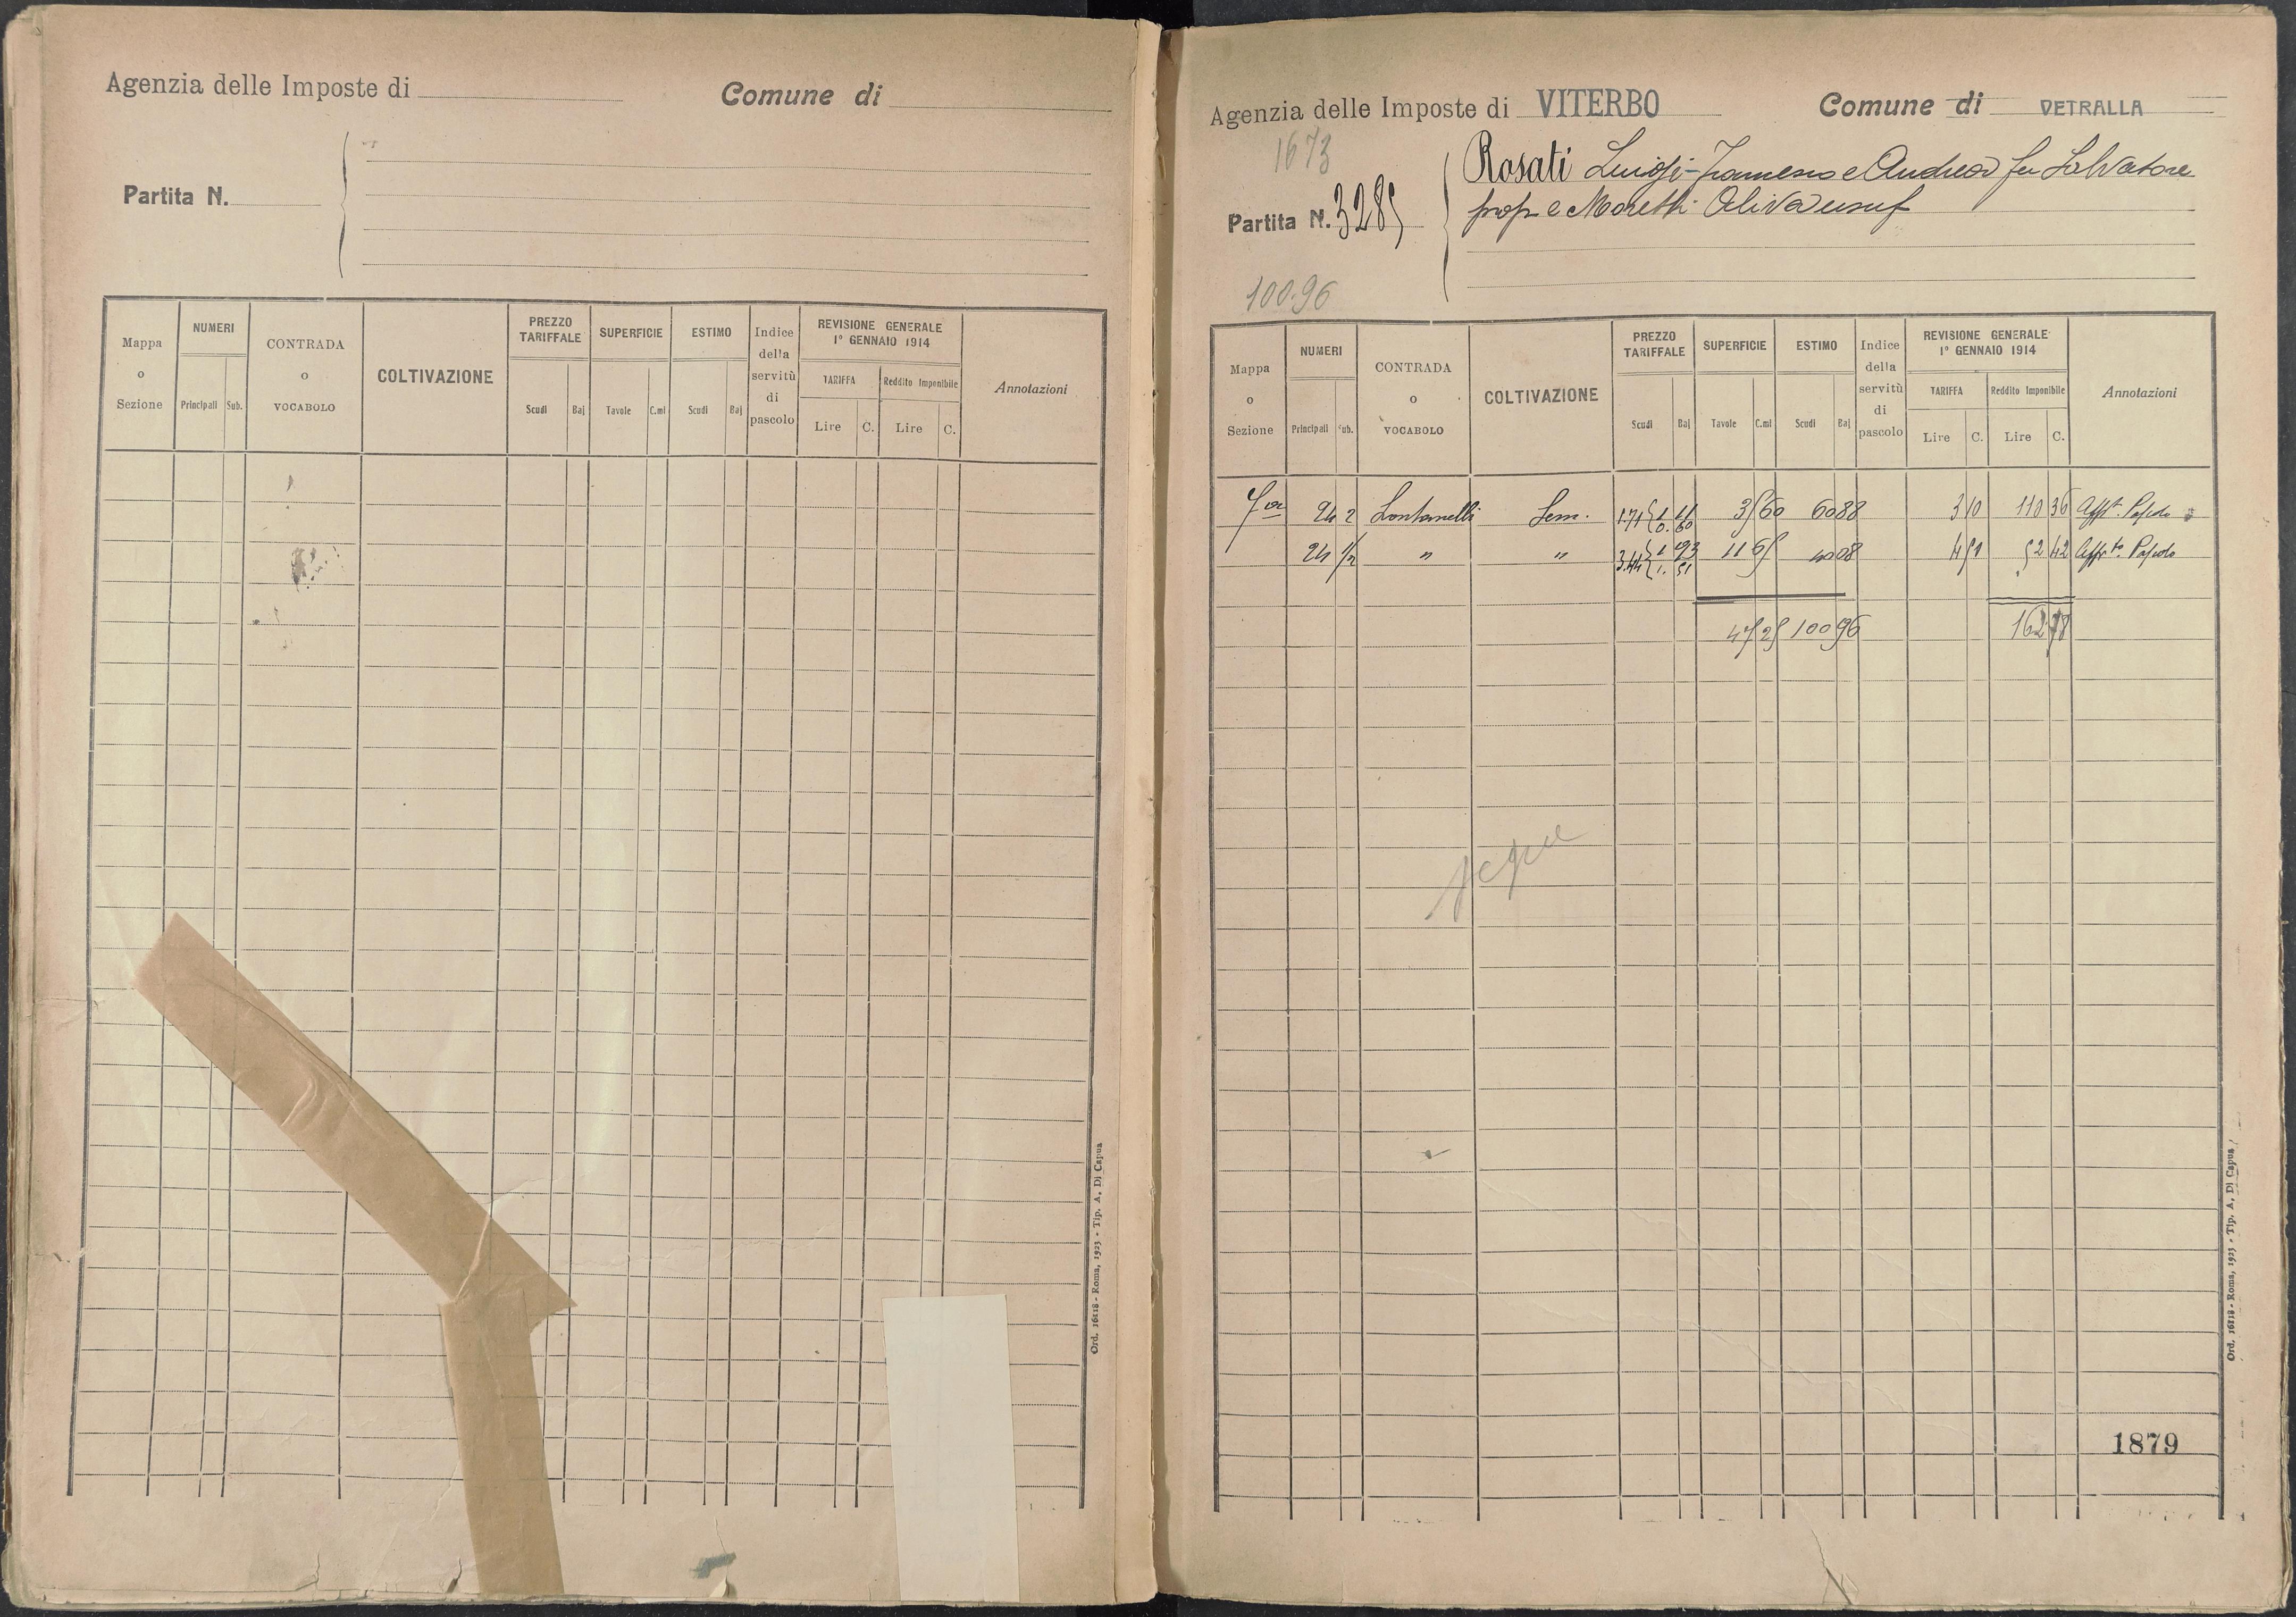 Agenzia delle Imposte di
Comune di
Partita N.
Mappa o Sezione
NUMERI
Principali
Sub.
CONTRADA o VOCABOLO
COLTIVAZIONE
PREZZO TARIFFALE
Scudi
Baj
SUPERFICIE
Tavole
C.mi
ESTIMO
Scudi
Baj
Indice della servitù di pascolo
REVISIONE GENERALE
1° GENNAIO 1914
TARIFFA
Reddito Imponibile
Lire
C.
Lire
C.
Annotazioni
Ord. 16818 - Roma, 1923 - Tip. A. Di Capua
Agenzia delle Imposte di VITERBO
Comune di VETRALLA
1673
Rosati Luigi-Francesco e Andrea fu Salvatore
Partita N. 3285
prop e Moretti Oliva usuf
100.96
Mappa o Sezione
NUMERI
Principali
Sub.
CONTRADA o VOCABOLO
COLTIVAZIONE
PREZZO TARIFFALE
Scudi
Baj
SUPERFICIE
Tavole
C.mi
ESTIMO
Scudi
Baj
Indice della servitù di pascolo
REVISIONE GENERALE
1° GENNAIO 1914
TARIFFA
Reddito Imponibile
Lire
C.
Lire
C.
Annotazioni
24 2 Sem. 1.71 1 11 0.60 35 60 60 88 3 10 110 36
24 1/2 " " 3.44 1 93 1. 51 11 65 40 08 4 51 52 42
47 25 100 96 162 78
segue
1879
Ord. 16818 - Roma, 1923 - Tip. A. Di Capua